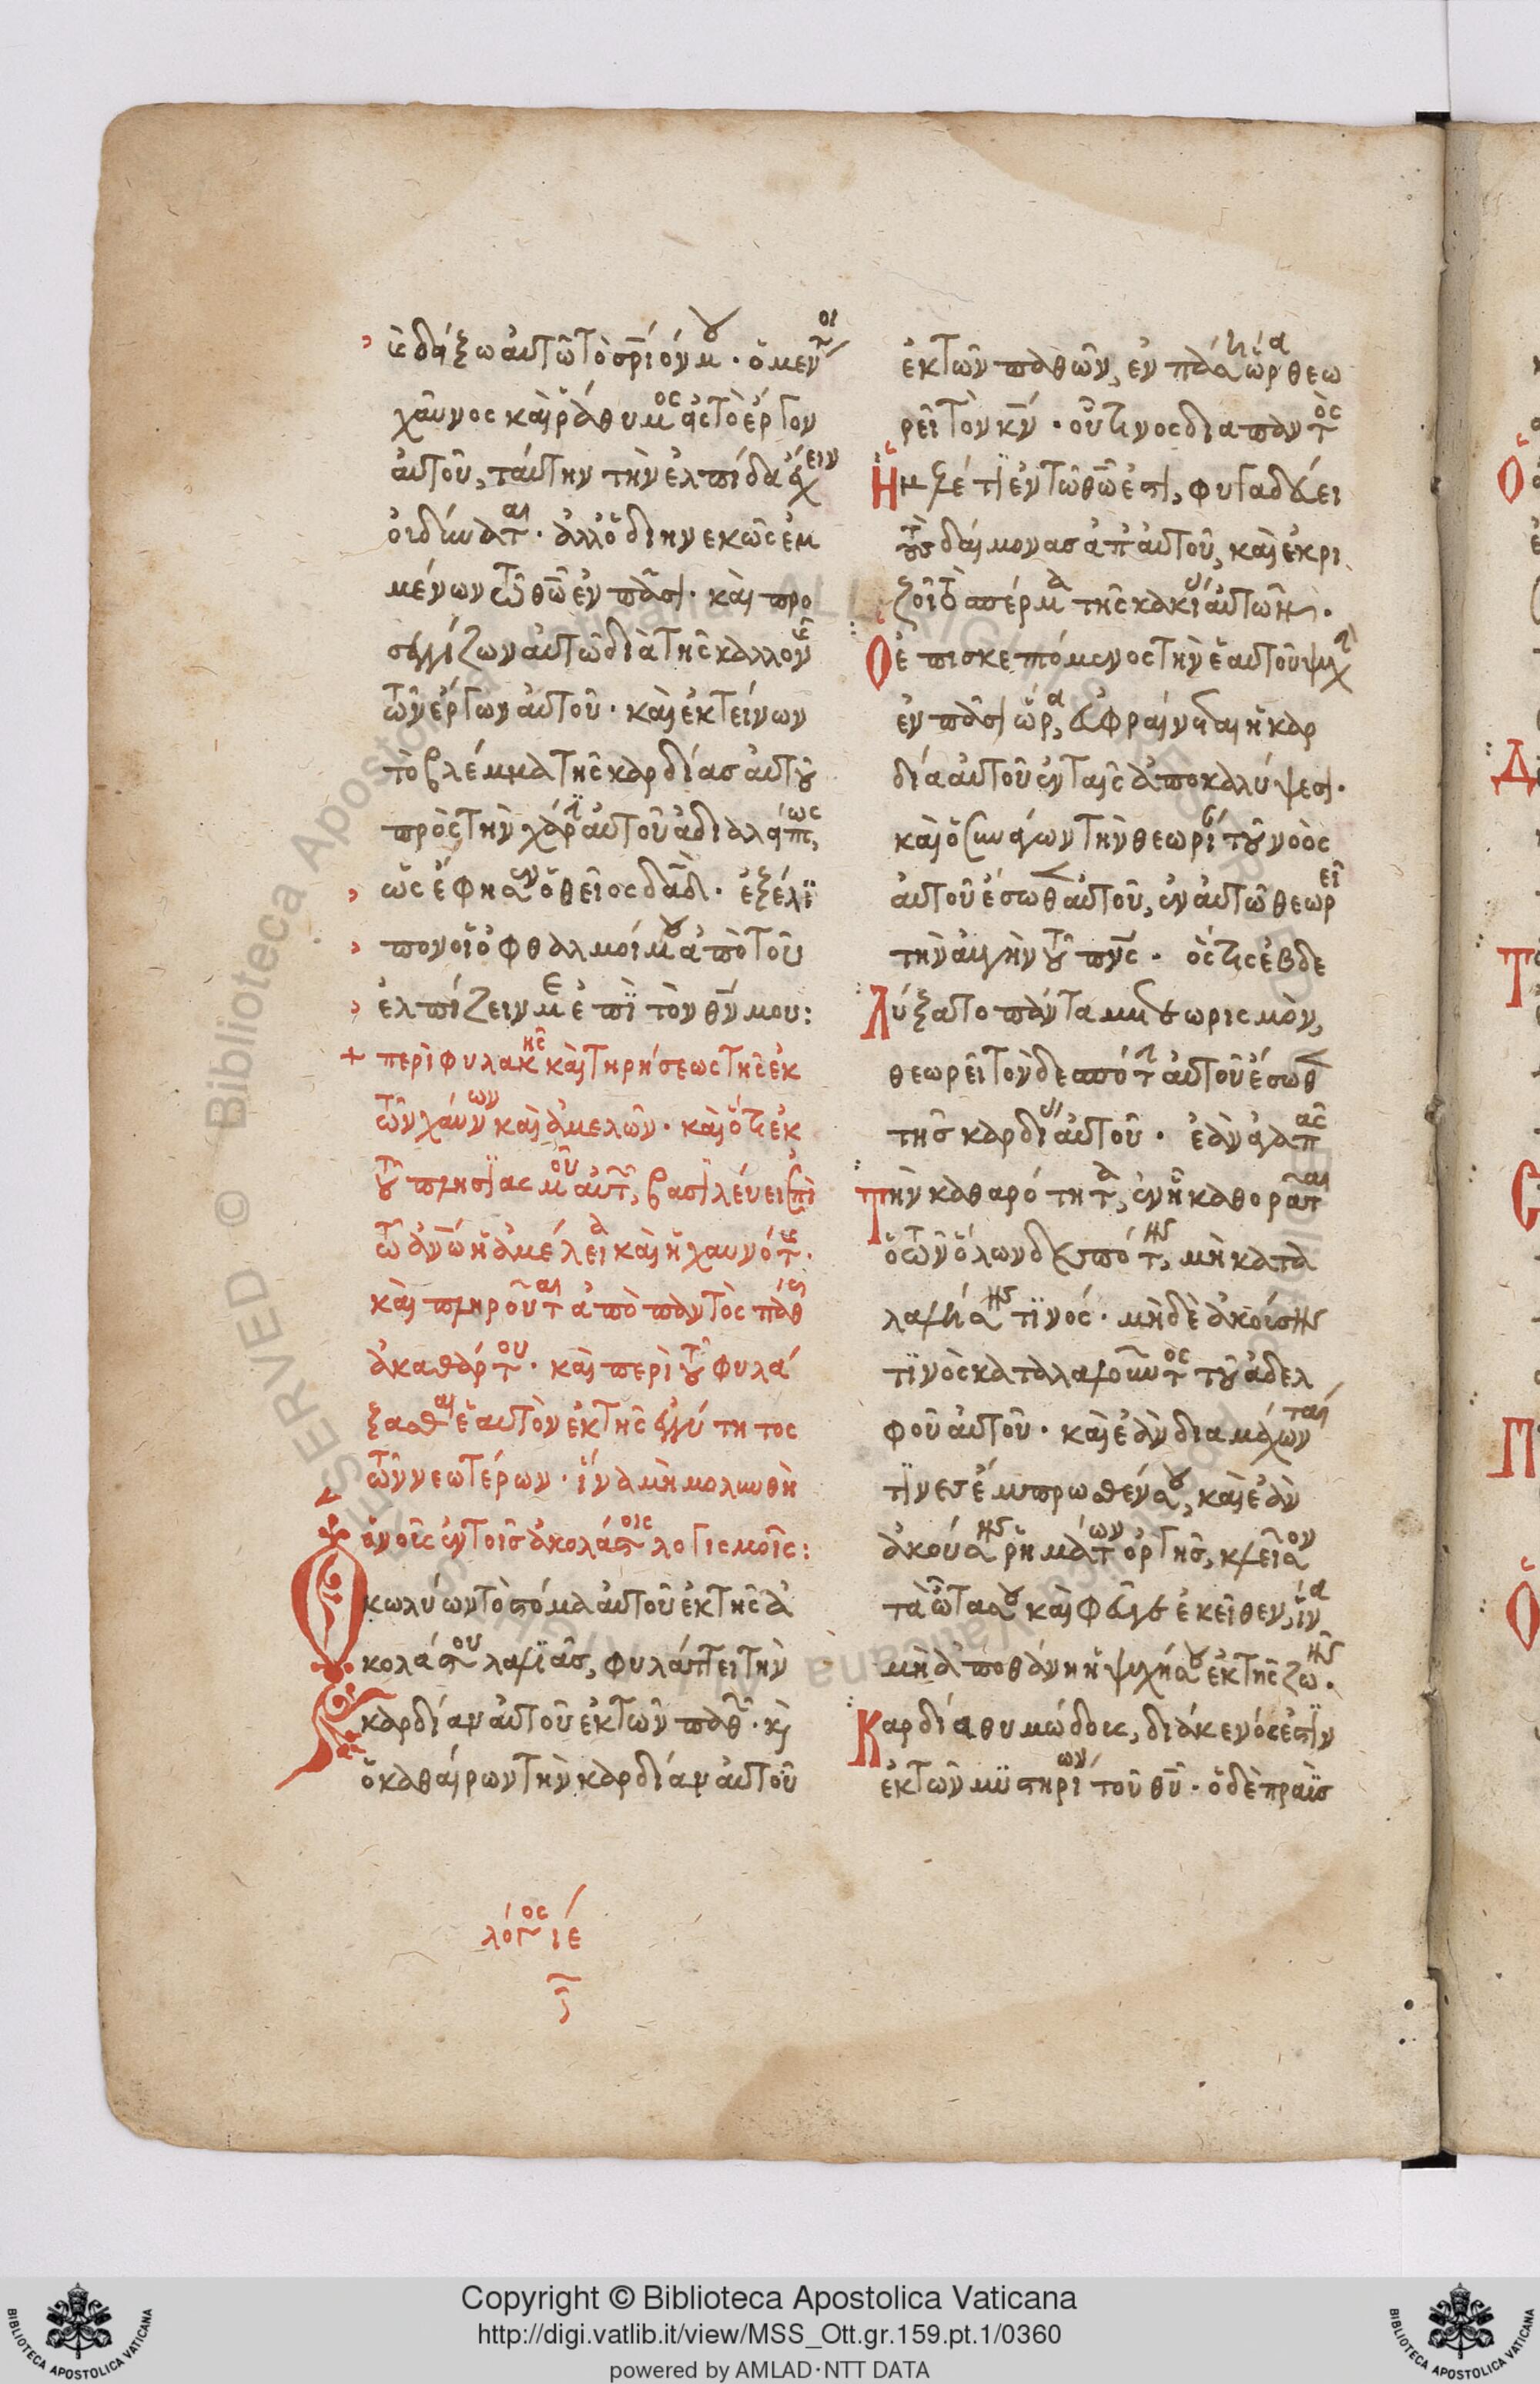 κ δείξω αὐτῶ τὸ σριόν μου · ὁ μέντοι
χαῦνος καὶ ῥάθυμος εἰς τὸ ἔργον
αὐτοῦ, ταύτην τὴν ἐλπίδα ἔχειν
οὐ δύναται · ἀλλ' ὁ διηνεκῶς ἐμ
μένων τῶ θῶ ἐν πᾶσι · καὶ προ
σεγγίζων αὐτῶ διὰ τῆς καλλονῆς
τῶν ἔργων αὐτοῦ · καὶ ἐκτείνων
τὸ βλέμμα τῆς καρδίας αὐτοῦ
πρὸς τὴν χάριν αὐτοῦ ἀδιαλείπτως,
ὡς ἔφησεν ὁ θεῖος δαδ · ἐξέλι
πον οἱ ὀφθαλμοί μου ἀπὸ τοῦ
ἐλπίζειν με ἐπὶ τὸν θν μου:
+ περὶ φυλακῆς καὶ τηρήσεως τῆς ἐκ
τῶν χαύνων καὶ ἀμελῶν · καὶ ὅτι ἐκ
τοῦ πλησιασμοῦ αὐτῶν, βασιλεύει ἐπὶ
τῶ ἀνῶ ἡ ἀμέλεια καὶ ἡ χαυνότης ·
καὶ πληροῦται ἀπὸ παντὸς πάθους
ἀκαθάρτου · καὶ περὶ τοῦ φυλά
ξασθαι ἑαυτὸν ἐκ τῆς ἐγγύτητος
τῶν νεωτέρων · ἵνα μὴ μολυνθῆ
ὁ νοῦς ἐν τοῖς ἀκολάστοις λογισμοῖς:
Ὁ κωλύων τὸ στόμα αὐτοῦ ἐκ τῆς ἀ
κολάστου λαλιᾶς, φυλάττει τὴν
καρδίαν αὐτοῦ ἐκ τῶν παθῶν · κὶ
ὁ καθαίρων τὴν καρδίαν αὐτοῦ
λόγος ιε
ἐκ τῶν παθῶν, ἐν πάση ὥρα θεω
ρεῖ τὸν κν · οὗτινος διὰ παντὸς
Ἡ μελέτη ἐν τῶ θῶ ἐστι, φυγαδεύει
τοὺς δαίμονας ἀπ' αὐτοῦ, καὶ ἐκρι
ζοῖ τὸ σπέρμα τῆς κακίας αὐτῶν.
Ὁ ἐπισκεπτόμενος τὴν ἑαυτοῦ ψυχὴν
ἐν πάση ὥρα, εὐφραίνεται ἡ καρ
δία αὐτοῦ ἐν ταῖς ἀποκαλύψεσι ·
καὶ ὁ συνάγων τὴν θεωρίαν τοῦ νοὸς
αὐτοῦ ἔσωθεν αὐτοῦ, ἐν αὐτῶ θεωρεῖ
τὴν αὐγὴν τοῦ πνς · ὅστις ἐβδε
λύξατο πάντα μετεωρισμὸν,
θεωρεῖ τὸν δεσπότην αὐτοῦ ἔσωθεν
τῆς καρδίας αὐτοῦ · ἐὰν ἀγαπᾶς
τὴν καθαρότητα, ἐν ἧ καθορᾶται
ὁ τῶν ὅλων δεσπότης, μὴ κατα
λαλήσης τινός · μηδὲ ἀκούσης
τινὸς καταλαλοῦντος τοῦ ἀδελ
φοῦ αὐτοῦ · καὶ ἐὰν διαμάχωνται
τινες ἔμπροσθέν σου, καὶ ἐὰν
ἀκούσης ῥημάτων ὀργῆς, κλεῖσον
τὰ ὦτα σου καὶ φεῦγε ἐκεῖθεν, ἵνα
μὴ ἀποθάνη ἡ ψυχή σου ἐκ τῆς ζωῆς.
Καρδία θυμώδους, διάκενός ἐστιν
ἐκ τῶν μυστηρίων τοῦ θυ · ὁ δὲ πραῢς
Copyright © Biblioteca Apostolica Vaticana
http://digi.vatlib.it/view/MSS_Ott.gr.159.pt.1/0360
powered by AMLAD·NTT DATA